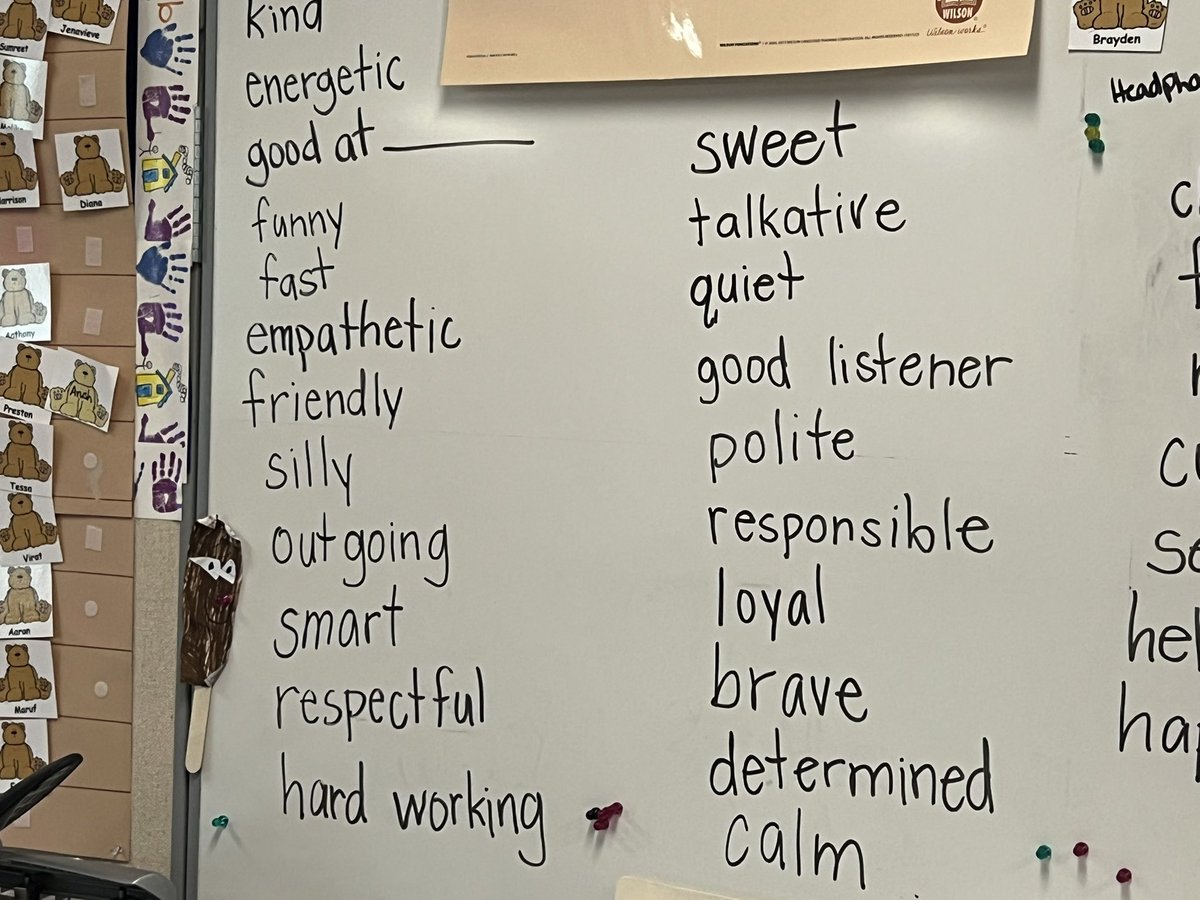 Jenavieve
Sumreet
Diana
Anthony
Preston
Anah
Tessa
Virat
Aaron
Maruf
kind
energetic
good at
funny
fast
empathetic
friendly
silly
outgoing
smart
respectful
hard working
WILSON
Wilson works
sweet
talkative
quiet
good listener
polite
responsible
loyal
brave
determined
calm
Brayden